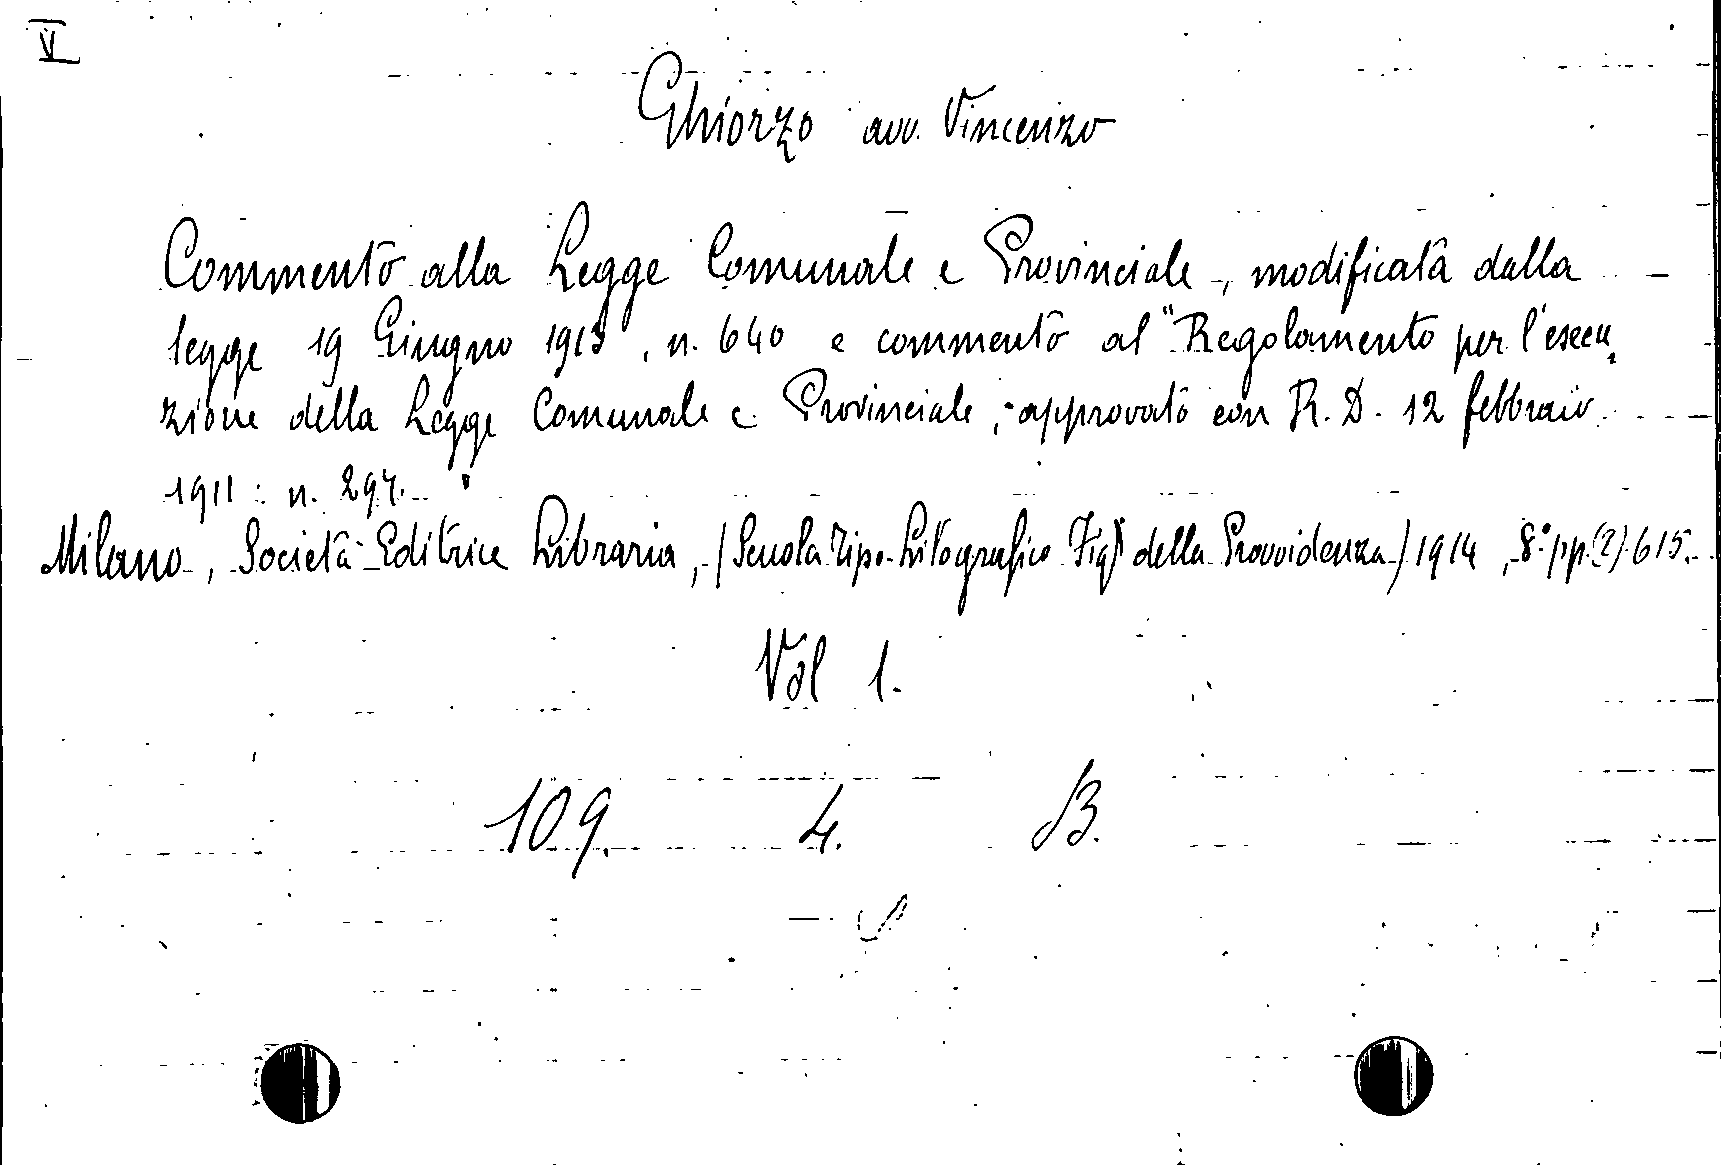 V
Ghiorzo avv. Vincenzo
Commento alla Legge Comunale e Provinciale, modificata dalla
legge 19 Giugno 1913, n. 640 e commento al "Regolamento per l'esecu-
zione della Legge Comunale e Provinciale, approvato con R. D. 12 febbraio
1911: n. 297. "
Milano, Società Editrice Libraria, (Scuola Tipo-Litografico Figli della Provvidenza) 1914, 8° pp. (2) 615.
Vol 1.
109. 4. B.